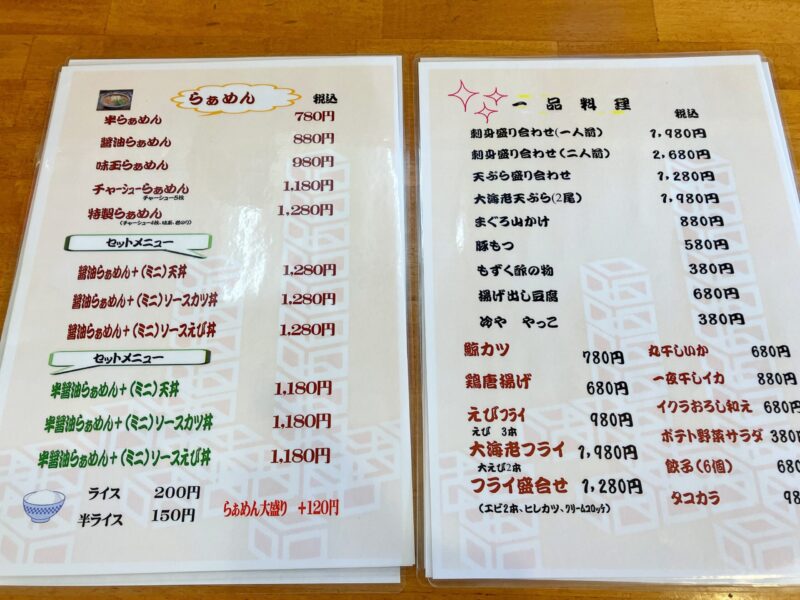 らぁめん 税込
半らぁめん 780円
醤油らぁめん 880円
味玉らぁめん 980円
チャーシューらぁめん 1,180円
チャーシュー5枚
特製らぁめん 1,280円
セットメニュー
醤油らぁめん+(ミニ)天丼 1,280円
醤油らぁめん+(ミニ)ソースカツ丼 1,280円
醤油らぁめん+(ミニ)ソースえび丼 1,280円
セットメニュー
半醤油らぁめん+(ミニ)天丼 1,180円
半醤油らぁめん+(ミニ)ソースカツ丼 1,180円
半醤油らぁめん+(ミニ)ソースえび丼 1,180円
ライス 200円
半ライス 150円
らぁめん大盛り +120円
一品料理
税込
刺身盛り合わせ(一人前) 1,980円
刺身盛り合わせ(二人前) 2,680円
天ぷら盛り合わせ 1,280円
大海老天ぷら(2尾) 1,980円
まぐろ山かけ 880円
豚もつ 580円
もずく酢の物 380円
揚げ出し豆腐 680円
冷や やっこ 380円
鯨カツ 780円
鶏唐揚げ 680円
えびフライ 980円
えび 3本
大海老フライ 1,980円
大えび2本
フライ盛合せ 1,280円
(エビ2本、ヒレカツ、クリームコロッケ)
丸干しいか 680円
一夜干しイカ 880円
イクラおろし和え 680円
ポテト野菜サラダ 380円
餃子(6個) 680
タコカラ 98